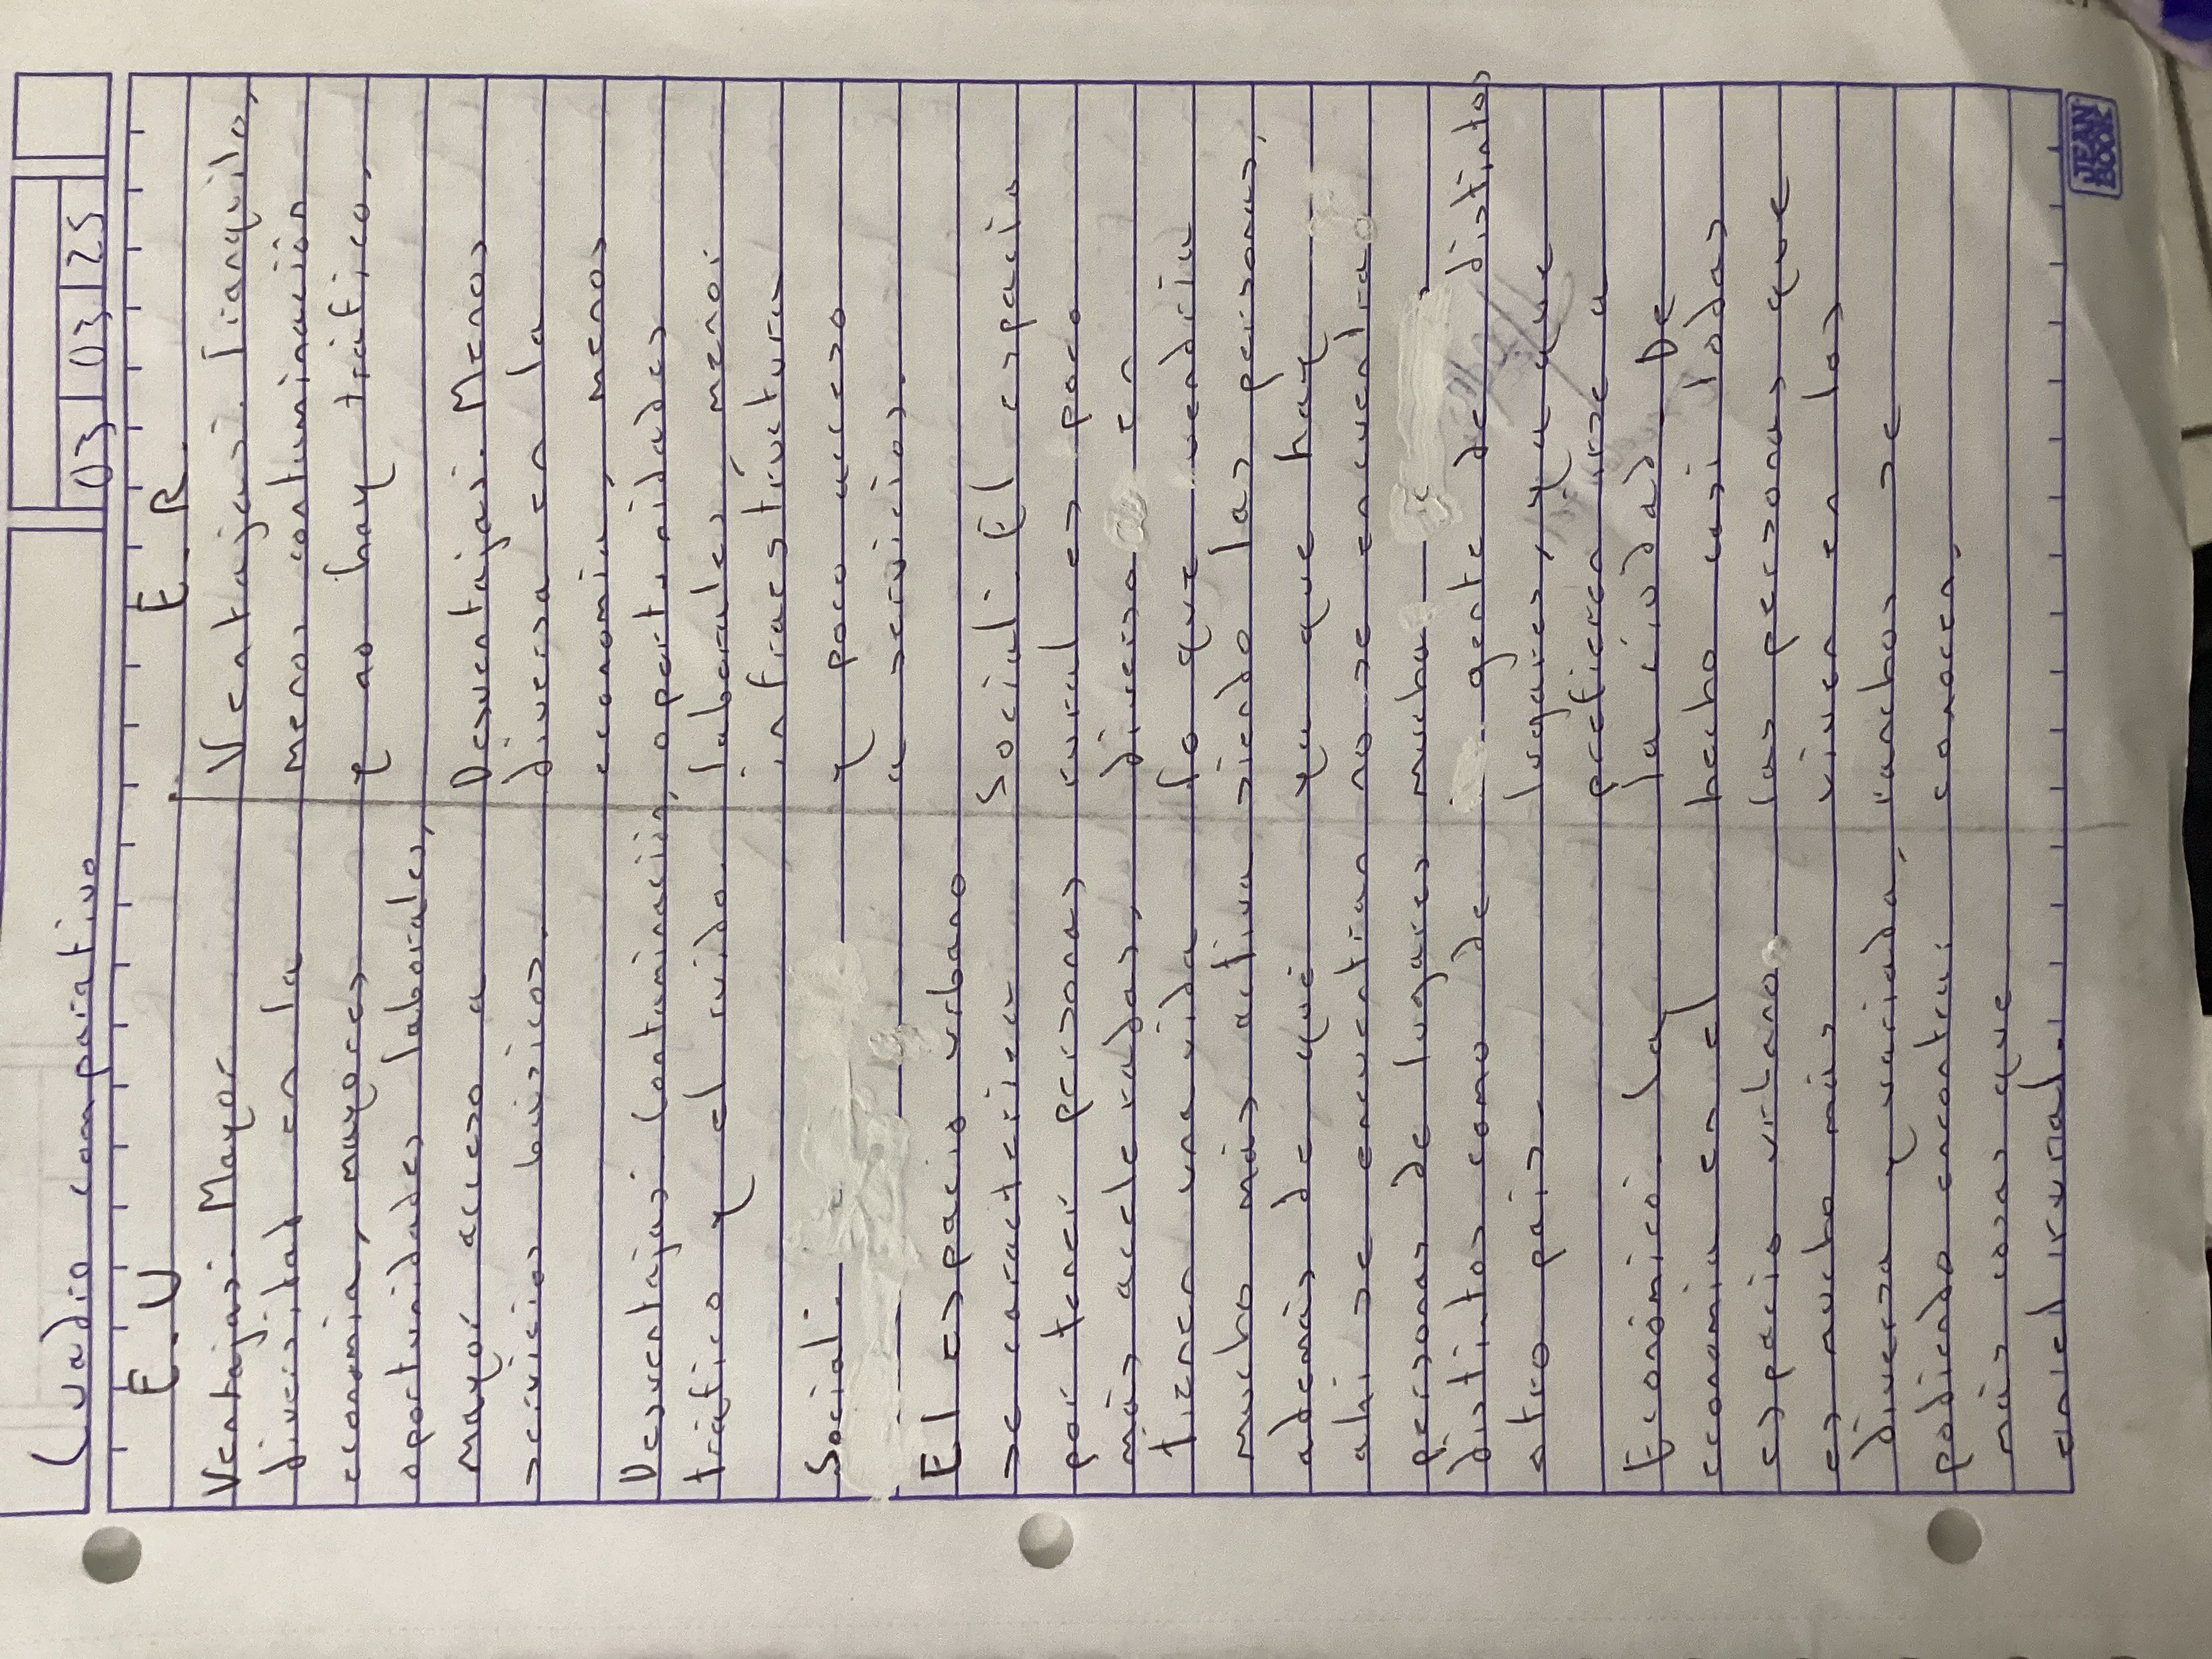 Cuadro comparativo
03 03 25
E.U
Ventajas: Mayor
diversitad en la
economia, mayores
oportunidades laborales,
mayor acceso a
servicios básicos.
Desventajas: Contaminación,
tráfico y el ruido.
Social:
El espacio urbano
se caracterizer
por tener personas
más aceleradas,
tienen una vida
mucho más activa
además de que
ahi se encuentran
personas de lugares
distintos como de
otro país.
Económico: La
economia en el
espacio urbano
es mucho más
diversa y variada,
podiendo encontrar
más cosas que
en el irrural.
E.R
Ventajas: Tranquilo,
menos contaminación
y no hay tráfico,
Desventajas: Menos
diversa en la
economia, menos
oportunidades
laborales, menor
infraestructura
y poco acceso
a servicios.
Social: El espacio
rural es poco
diverso en
lo que vendria
siendo las personas,
ya que hay
no se encuentra
mucha
gente de distintos
lugares, ya que
prefieren irse a
la ciudad. De
hecho casi todas
las personas que
viven en los
ranchos se
conocen.
JEAN
BOOK